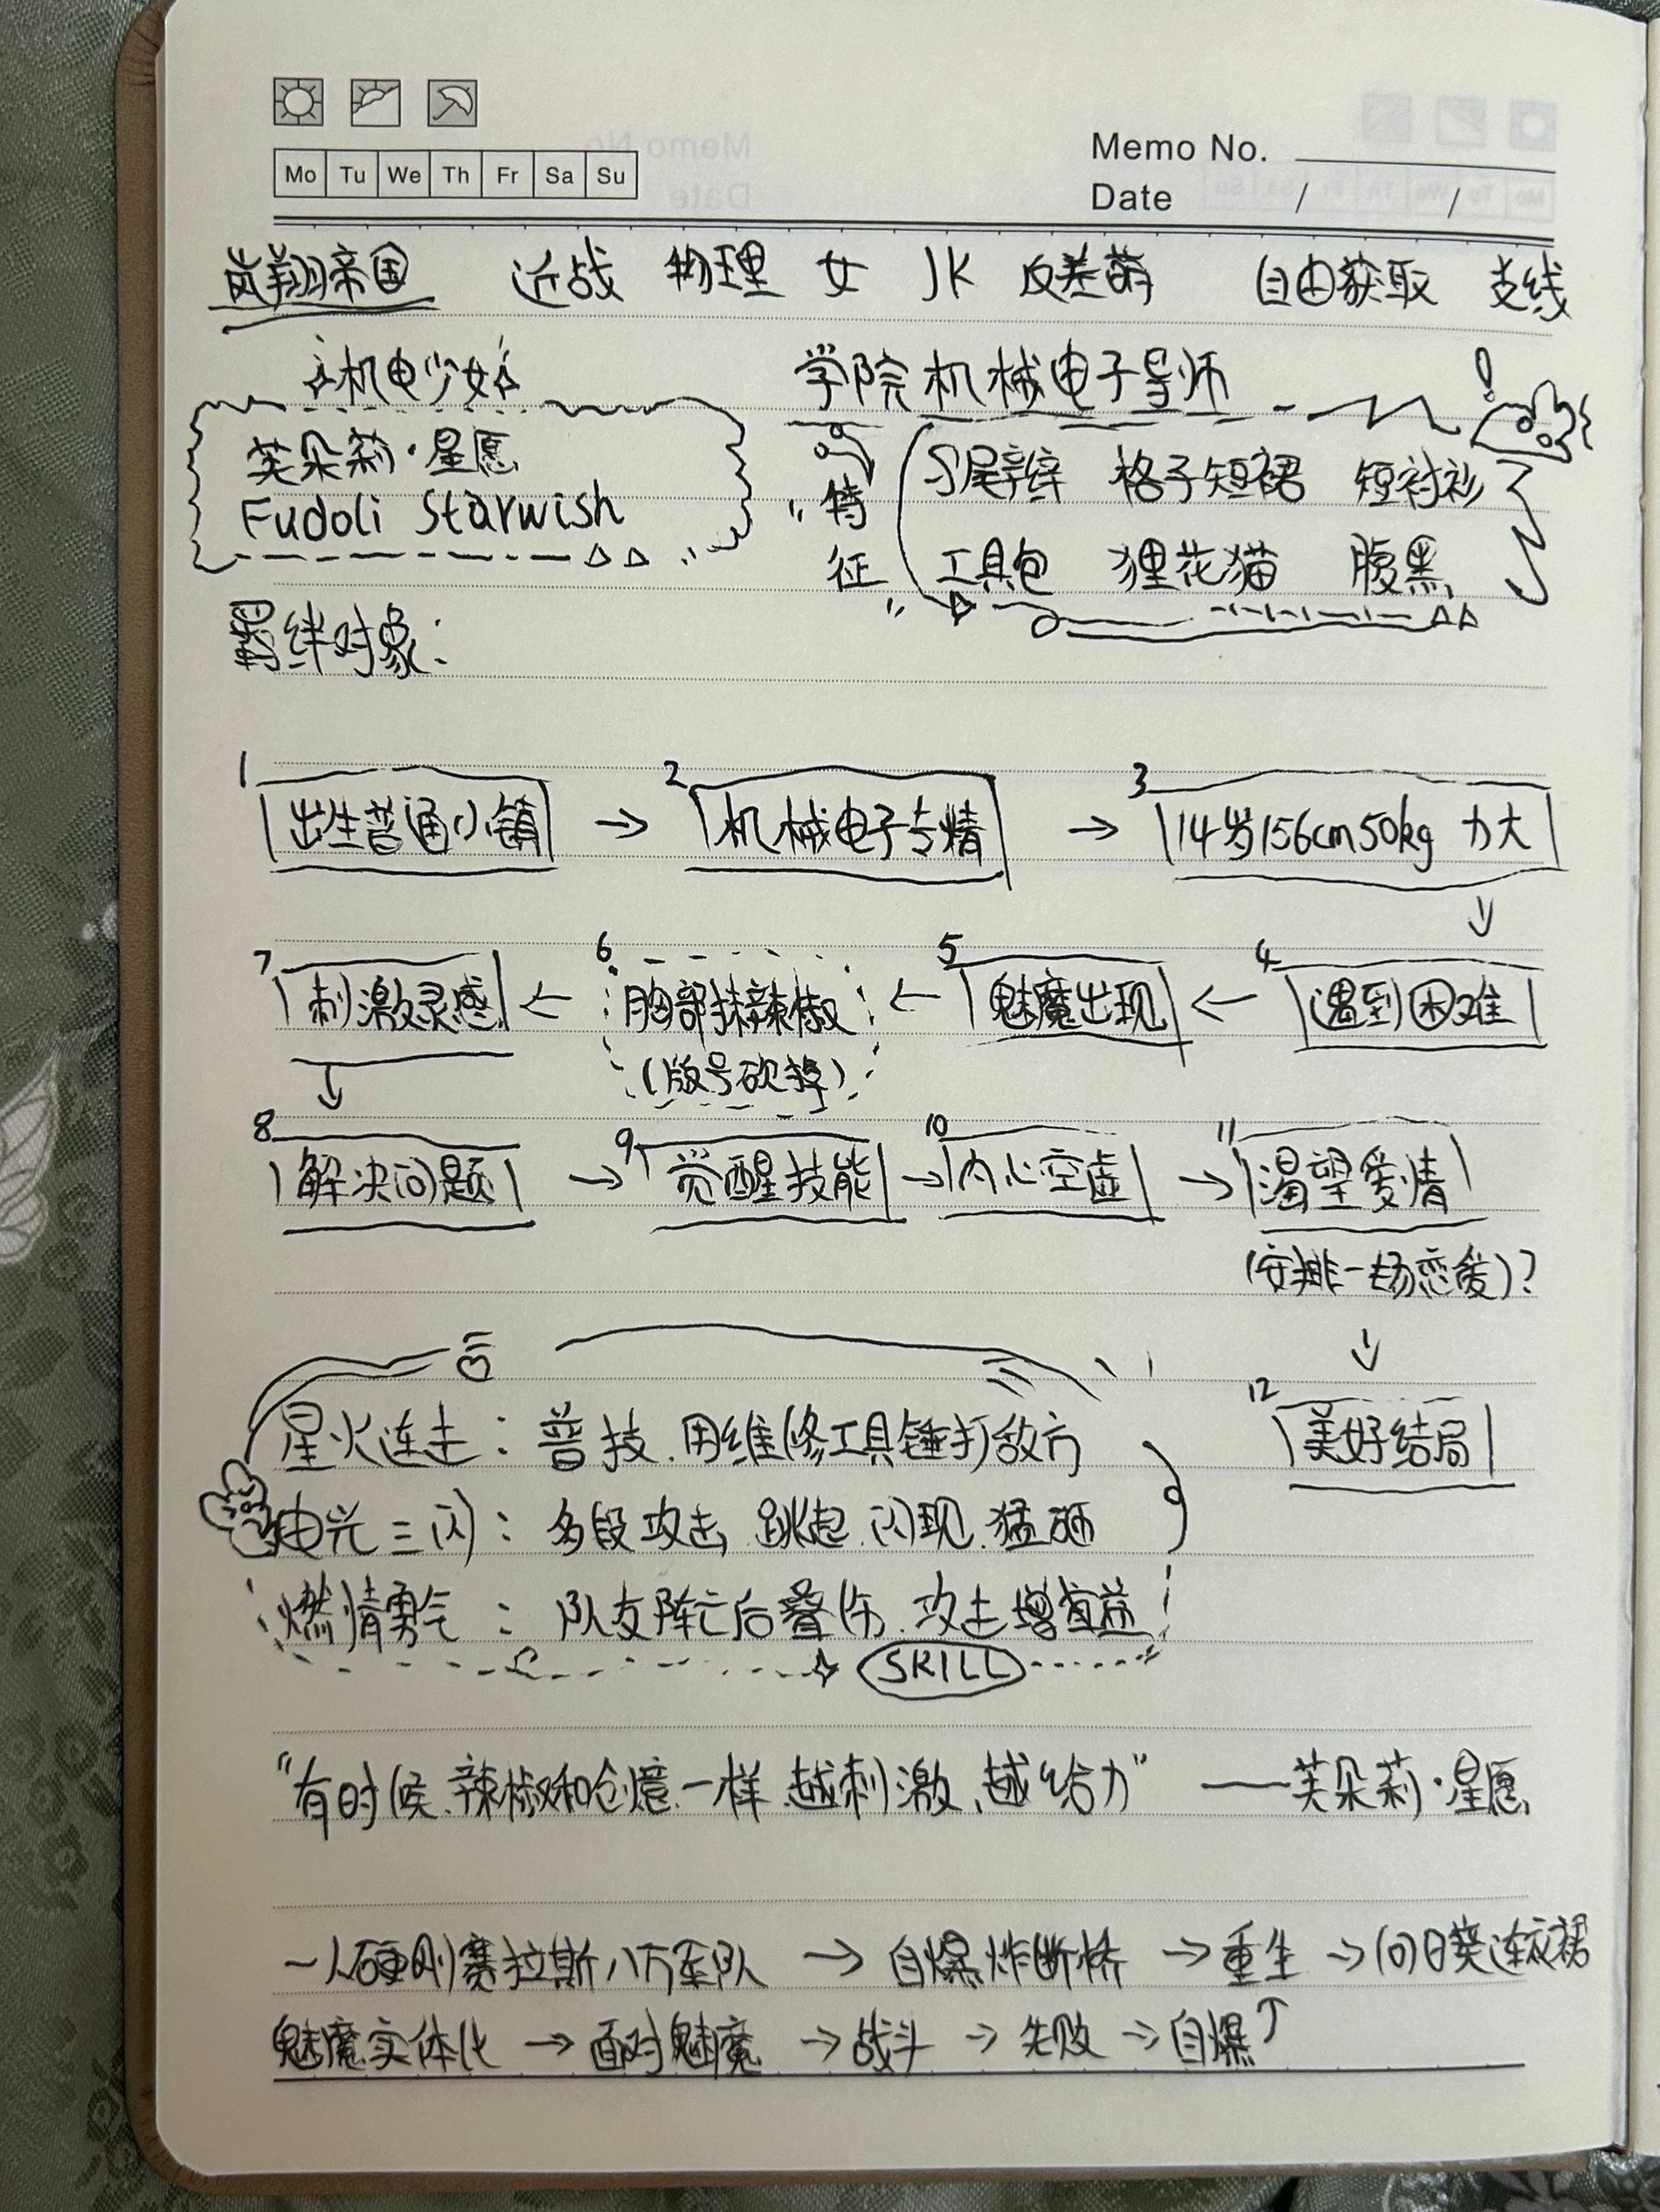 Mo Tu We Th Fr Sa Su
Memo No.
Date / /
岚翔帝国 近战 物理 女 JK 反差萌 自由获取 支线
机电少女 学院机械电子导师
芙朵莉·星愿
Fudoli Starwish
"特征" 马尾辫 格子短裙 短衬衫
工具包 狸花猫 腹黑
羁绊对象:
1 出生普通小镇 → 2 机械电子专精 → 3 14岁156cm50kg 力大
↓
7 刺激灵感 ← 6 胸部抹辣椒 ← 5 魅魔出现 ← 4 遇到困难
(版号砍掉)
↓
8 解决问题 → 9 觉醒技能 → 10 内心空虚 → 11 渴望爱情
(安排一场恋爱)?
↓
12 美好结局
星火连击: 普技.用维修工具锤打敌方
电光三闪: 多段攻击,跳起.闪现.猛砸
燃情勇气: 队友阵亡后叠伤.攻击增益
SKILL
"有时候、辣椒和创意一样.越刺激、越给力" ——芙朵莉·星愿
一人硬刚赛拉斯八万军队 → 自爆炸断桥 → 重生 → 向日葵连衣裙
魅魔实体化 → 面对魅魔 → 战斗 → 失败 → 自爆↑